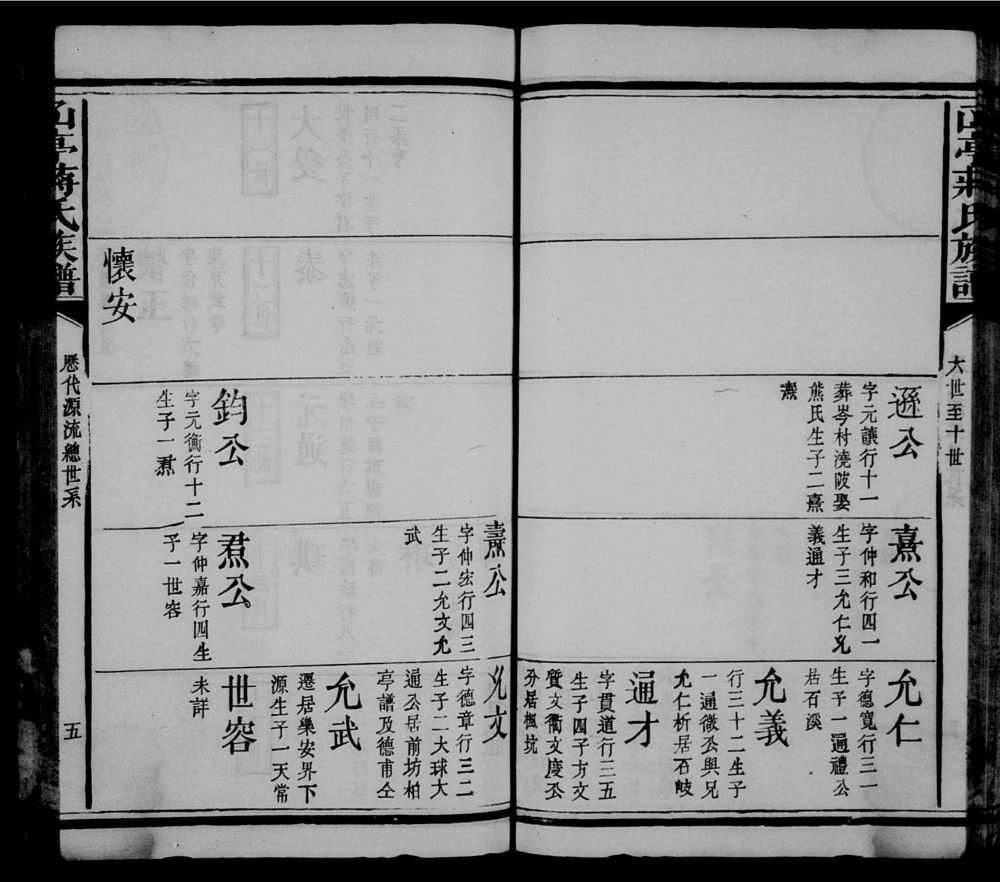 大世至十世
遜公
字元讓行十一
葬岑村澆陂娶
熊氏生子二熹
燾
熹公
字仲和行四一
生子三允仁允
義通才
允仁
字德寬行三一
生子一通禮公
居石溪
允義
行三十二生子
一通微公與兄
允仁析居石岐
通才
字貫道行三五
生子四子方文
質文衢文慶公
分居楓坑
燾公
字仲宏行四三
生子二允文允
武
允文
字德章行三二
生子二大球大
逋公居前坊柏
亭譜及德甫仝
允武
遷居樂安界下
源生子一天常
鈞公
字元衡行十二
生子一焄
焄公
字仲嘉行四生
子一世容
世容
未詳
懷安
亭蔣氏族譜
歷代源流總世系
五